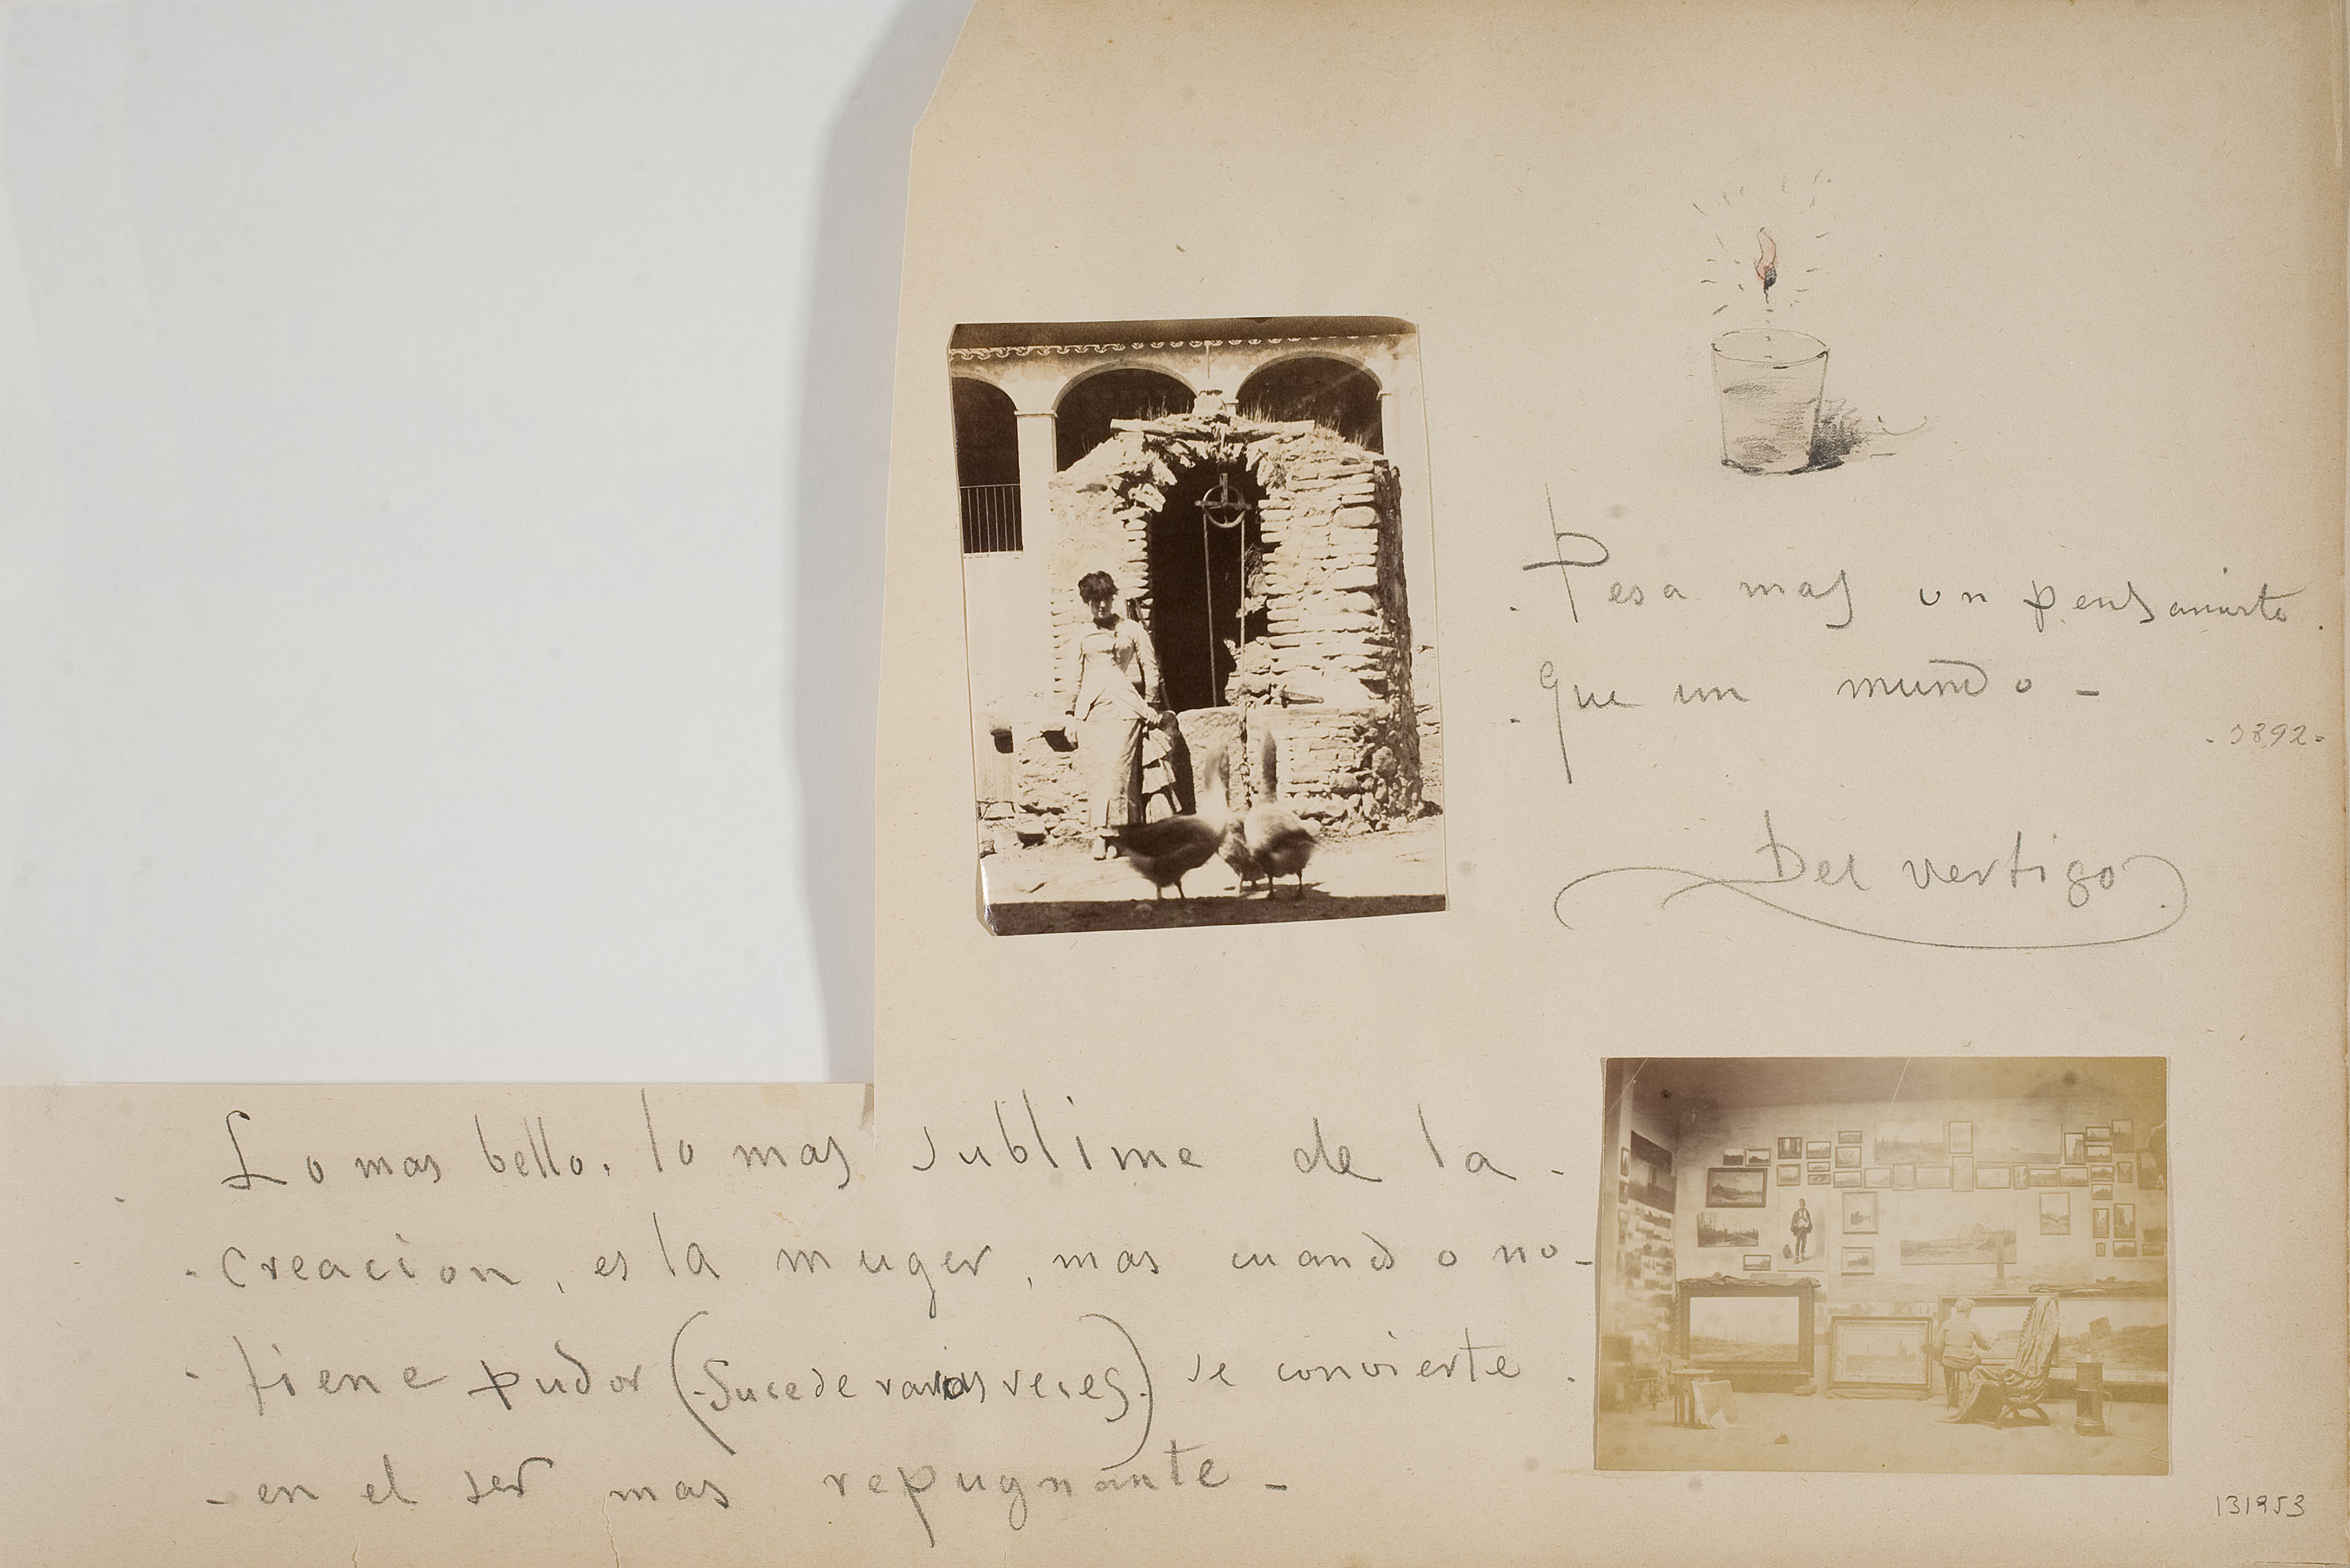 . Pesa mas un pensamiento .
. que un mundo -
- 1892 -
Del vertigo
. Lo mas bello. lo mas sublime de la -
. creacion, es la muger, mas cuando no -
. tiene pudor (. Sucede varias veces.) se convierte .
- en el ser mas repugnante -
131953